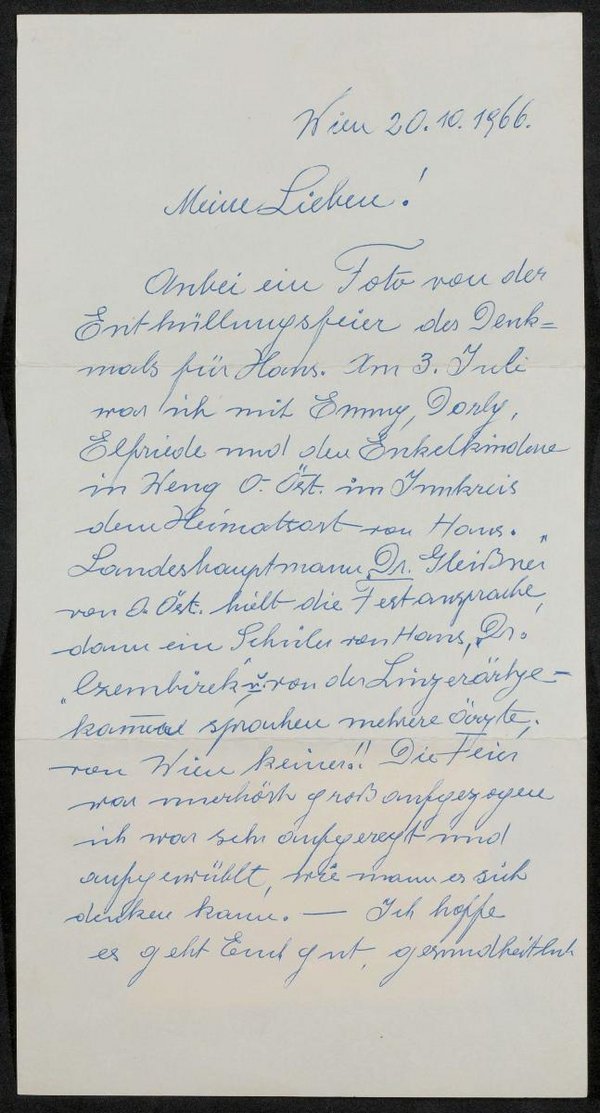 Wien 20.10.1966.
Meine Lieben!
Anbei ein Foto von der
Enthüllungsfeier des Denk=
mals für Hans. Am 3. Juli
war ich mit Emmy, Dorly,
Elfriede und den Enkelkindern
in Weng O. Öst. im Innkreis
dem Heimatsort von Hans.
Landeshauptmann „Dr. Gleißner"
von O. Öst. hielt die Festansprache,
dann ein Schüler von Hans, „Dr.
Czembirek" u. von der Linzerärzte-
kammer sprachen mehrere Ärzte,
von Wien keiner!! Die Feier
war unerhört groß aufgezogen
ich war sehr aufgeregt und
aufgewühlt, wie mann es sich
denken kann. — Ich hoffe
es geht Euch gut, gesundheitlich